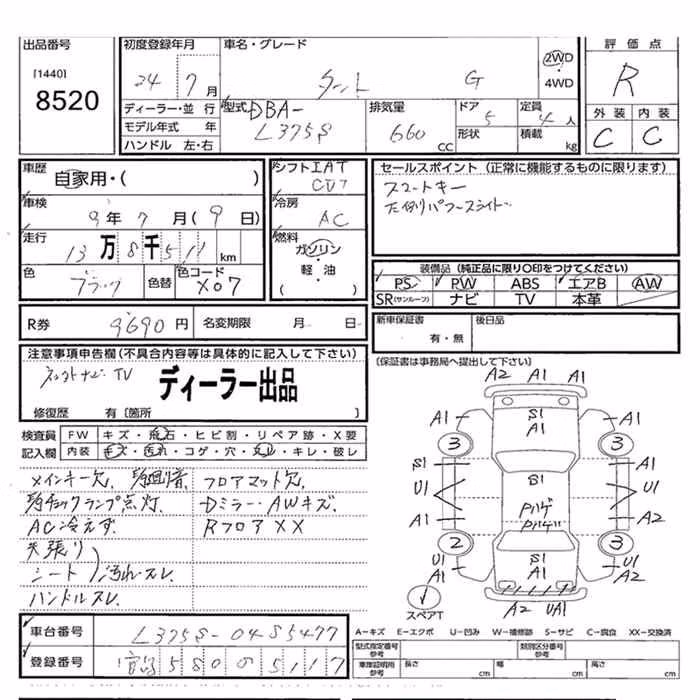 出品番号
[1440]
8520
初度登録年月
24 7 月
車名・グレード
タント G
2WD
・
4WD
評価点
R
外装 内装
C C
ディーラー・並行
モデル年式 年
ハンドル 左・右
型式 DBA-
L375S
排気量
660 cc
ドア 5
形状
定員 4 人
積載 kg
車歴
自家用・( )
車検
9 年 7 月 ( 9 日)
走行
13 万 8 千 5 1 1 km
色 ブラック
色替
色コード
X07
シフト IAT
CO7
冷房
AC
燃料
ガソリン
・
軽・油
( )
セールスポイント (正常に機能するものに限ります)
スマートキー
左側パワースライド
装備品 (純正品に限り○印をつけてください)
PS PW ABS エアB AW
SR(サンルーフ) ナビ TV 本革
R券 9690 円 名変期限 月 日
新車保証書 後日品
有・無
(保証書は事務局へ提出して下さい)
注意事項申告欄 (不具合内容等は具体的に記入して下さい)
ネットナビ TV
ディーラー出品
修復歴 有 [箇所 ]
検査員 FW キズ・飛石・ヒビ割・リペア跡・X要
記入欄 内装 キズ・汚れ・コゲ・穴・スレ・キレ・破レ
メインキー欠
フロアマット欠
チェックランプ点灯
Dミラー・AWキズ
AC冷えず
Rフロア XX
天張り
シート 汚れ・スレ
ハンドルスレ
A2 A1
A1 S1 A1 A1
3 3
S1 S1 A1
U1 U1
Pハゲ
Pハゲ
A1 A2
2 3
U1 A1 S1 A1 U1 A2
A2 UA1
スペアT
A-キズ E-エクボ U-凹み W-補修跡 S-サビ C-腐食 XX-交換済
車台番号 L375S-0485477
登録番号 580 5117
型式指定番号
参考
類別区分番号
参考
車庫証明用
参考
長さ cm
幅 cm
高さ cm